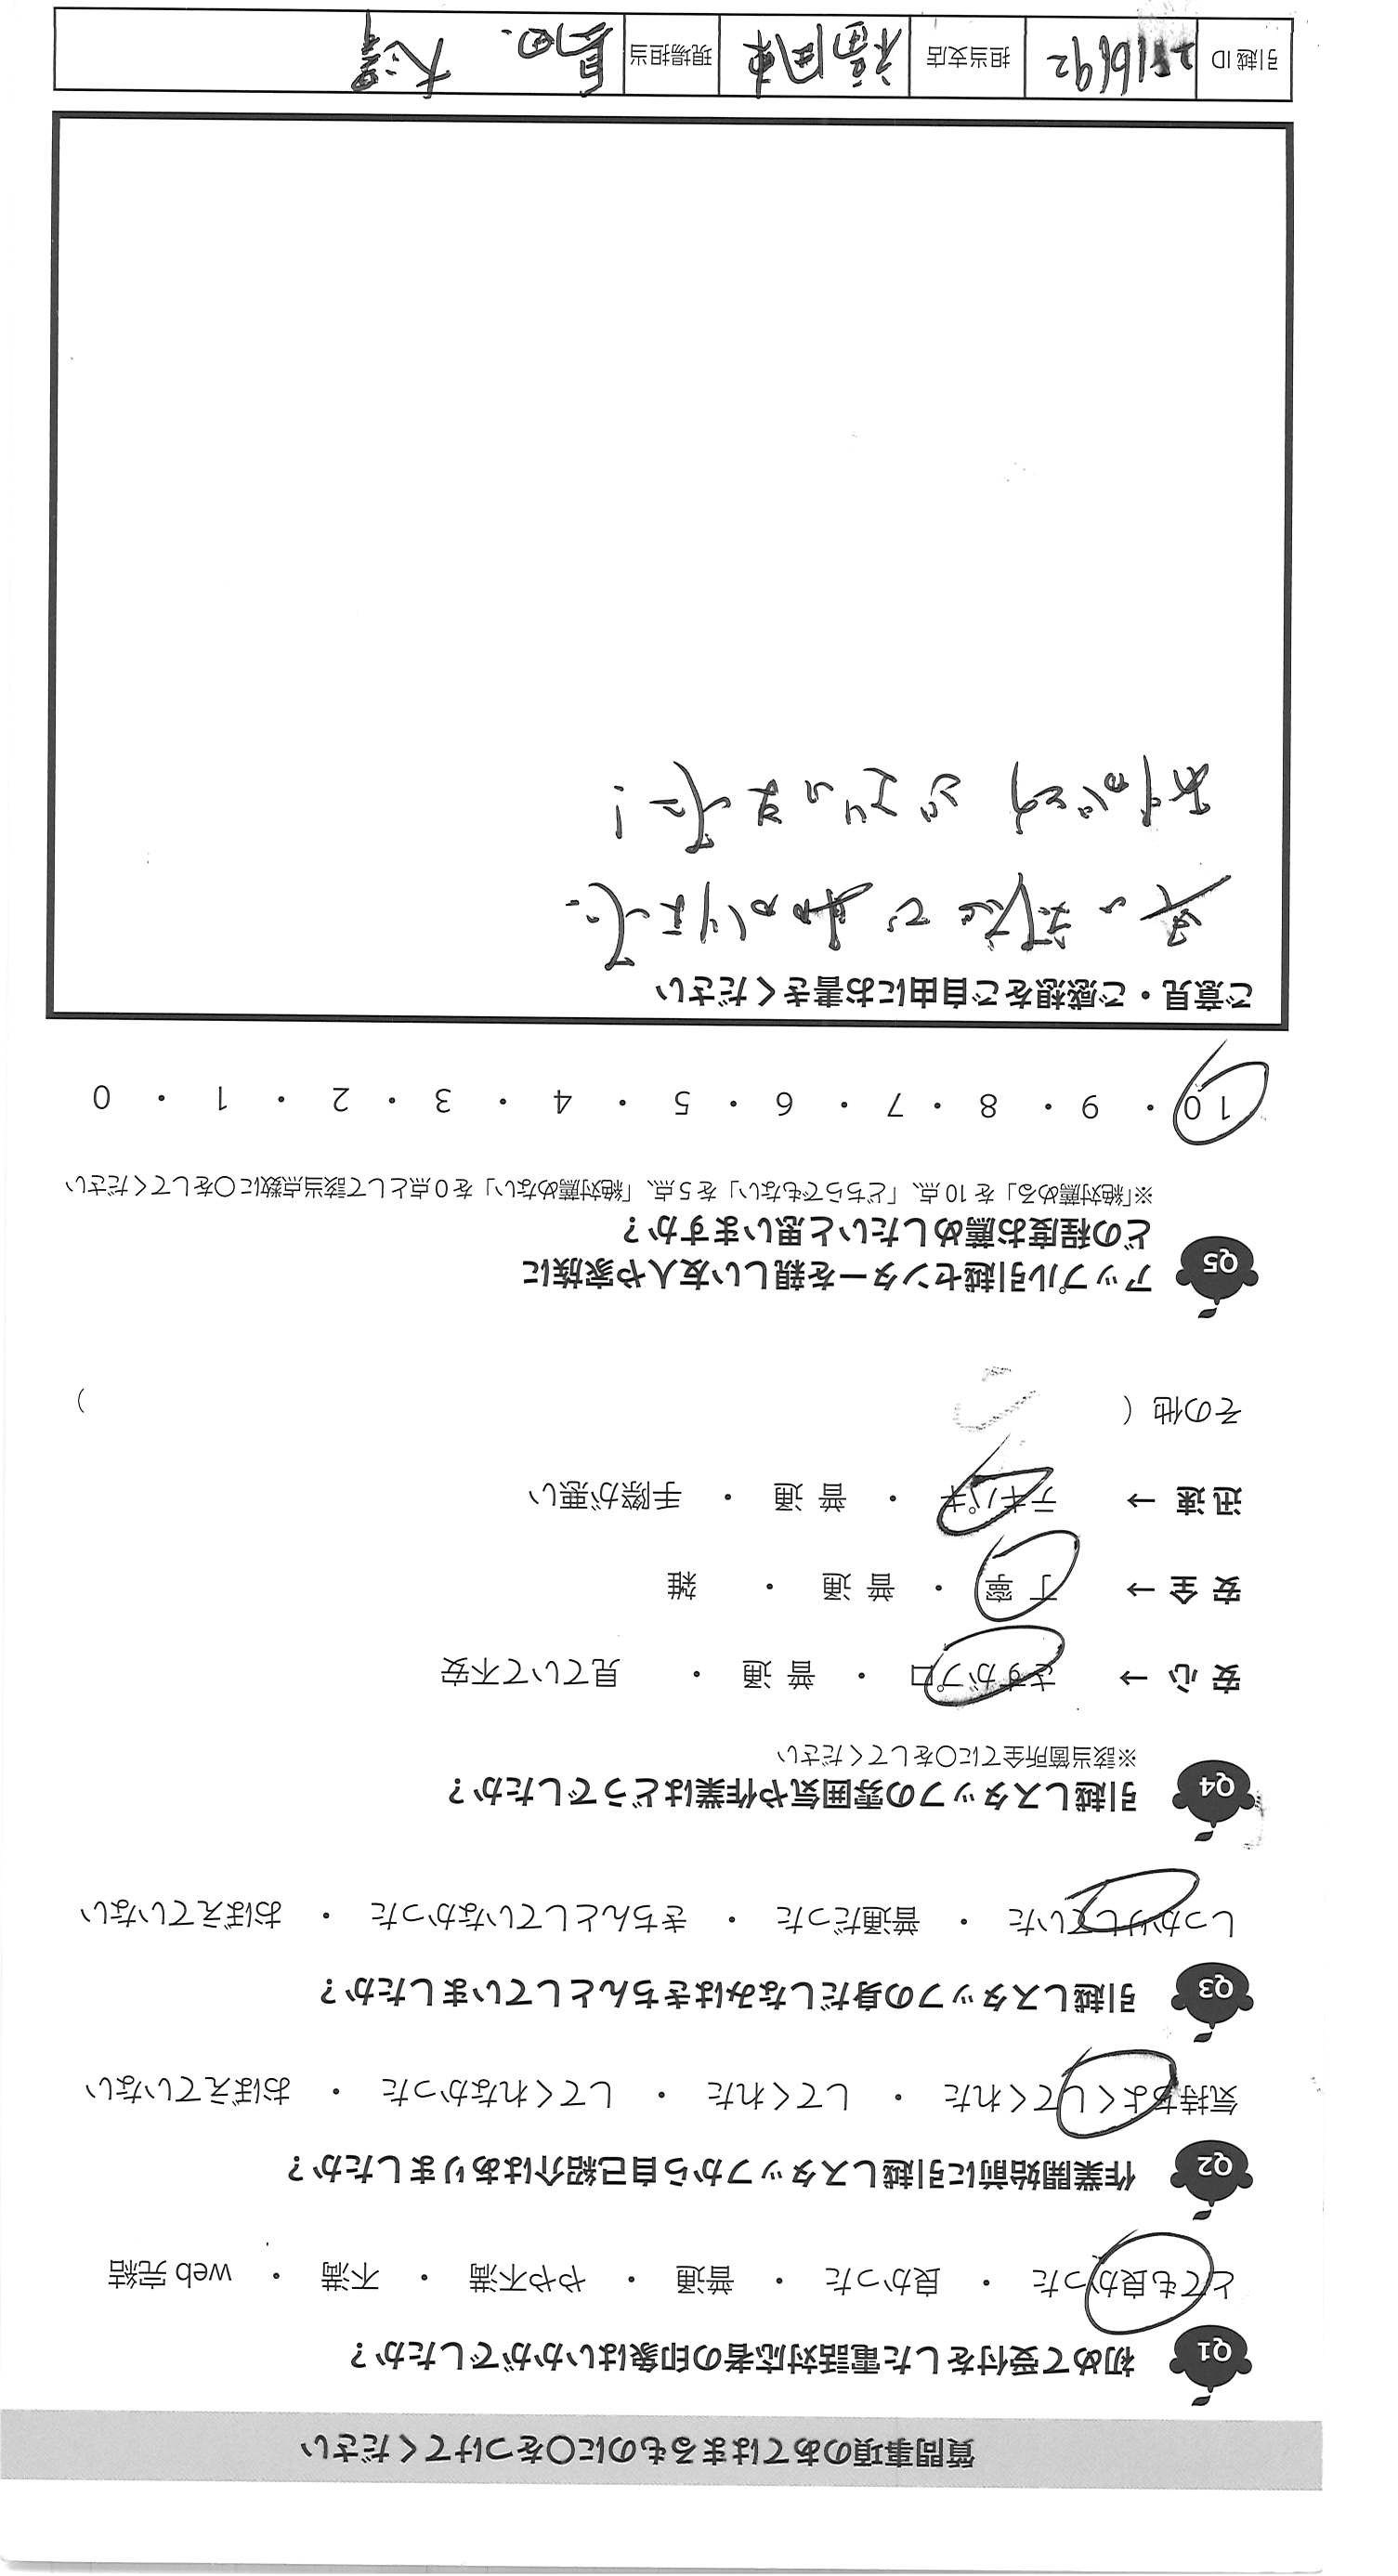 質問事項のあてはまるものに〇をつけてください
Q1 初めて受付をした電話対応者の印象はいかがでしたか？
とても良かった ・ 良かった ・ 普通 ・ やや不満 ・ 不満 ・ web 完結
Q2 作業開始前に引越しスタッフから自己紹介はありましたか？
気持ちよくしてくれた ・ してくれた ・ してくれなかった ・ おぼえていない
Q3 引越しスタッフの身だしなみはきちんとしていましたか？
しっかりしていた ・ 普通だった ・ きちんとしていなかった ・ おぼえていない
Q4 引越しスタッフの雰囲気や作業はどうでしたか？
※該当箇所全てに〇をしてください
安 心 → さすがプロ ・ 普 通 ・ 見ていて不安
安 全 → 丁 寧 ・ 普 通 ・ 雑
迅 速 → テキパキ ・ 普 通 ・ 手際が悪い
その他（ ）
Q5 アップル引越センターを親しい友人や家族に
どの程度お薦めしたいと思いますか？
※「絶対薦める」を 10 点、「どちらでもない」を 5 点、「絶対薦めない」を 0 点として該当点数に〇をしてください
10 ・ 9 ・ 8 ・ 7 ・ 6 ・ 5 ・ 4 ・ 3 ・ 2 ・ 1 ・ 0
ご意見・ご感想をご自由にお書きください
早い対応で助かりました。
ありがとうございました！
引越 ID 担当支店 福岡東 現場担当 島田.